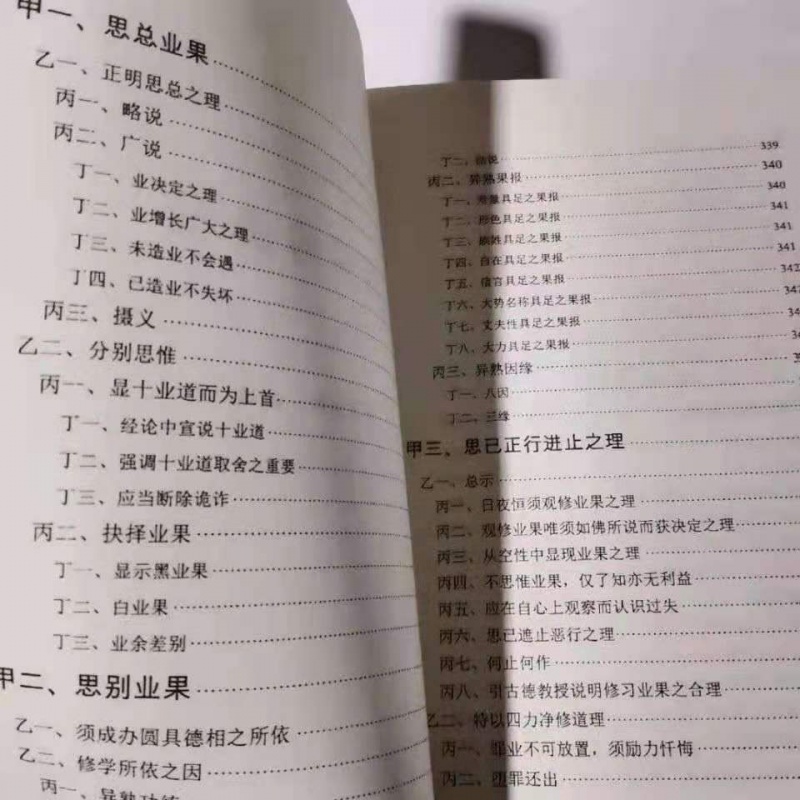 甲一、思总业果
乙一、正明思总之理
丙一、略说
丙二、广说
丁一、业决定之理
丁二、业增长广大之理
丁三、未造业不会遇
丁四、已造业不失坏
丙三、摄义
乙二、分别思惟
丙一、显十业道而为上首
丁一、经论中宣说十业道
丁二、强调十业道取舍之重要
丁三、应当断除诡诈
丙二、抉择业果
丁一、显示黑业果
丁二、白业果
丁三、业余差别
甲二、思别业果
乙一、须成办圆具德相之所依
乙二、修学所依之因
丙一、异熟功德
丁二、 339
丙二、异熟果报 340
丁一、寿量具足之果报 340
丁二、形色具足之果报 341
丁三、族姓具足之果报 341
丁四、自在具足之果报 341
丁五、信言具足之果报 342
丁六、大势名称具足之果报
丁七、丈夫性具足之果报
丁八、大力具足之果报
丙三、异熟因缘
丁一、八因
丁二、三缘
甲三、思已正行进止之理
乙一、总示
丙一、日夜恒须观修业果之理
丙二、观修业果唯须如佛所说而获决定之理
丙三、从空性中显现业果之理
丙四、不思惟业果，仅了知亦无利益
丙五、应在自心上观察而认识过失
丙六、思已遮止恶行之理
丙七、何止何作
丙八、引古德教授说明修习业果之合理
乙二、特以四力净修道理
丙一、罪业不可放置，须励力忏悔
丙二、堕罪还出